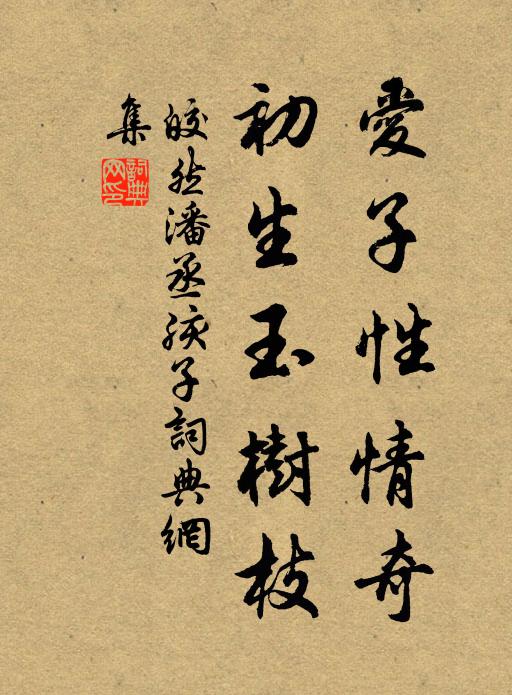 愛子性情奇
初生玉樹枝
皎然潘丞孩子詞典網
集
詞典
網印